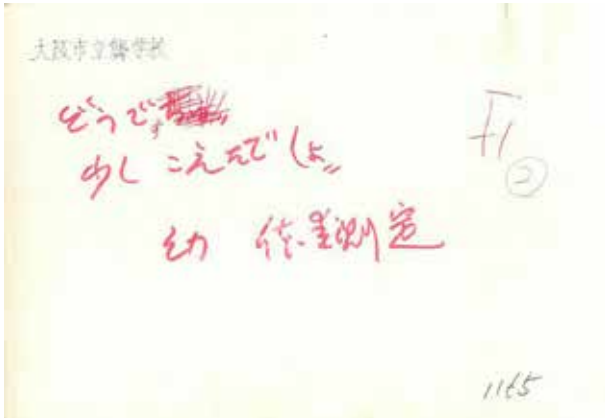 大阪市立聾学校
どうです
少しこえたでしょ〃
幼 体重測定
F1
②
1165